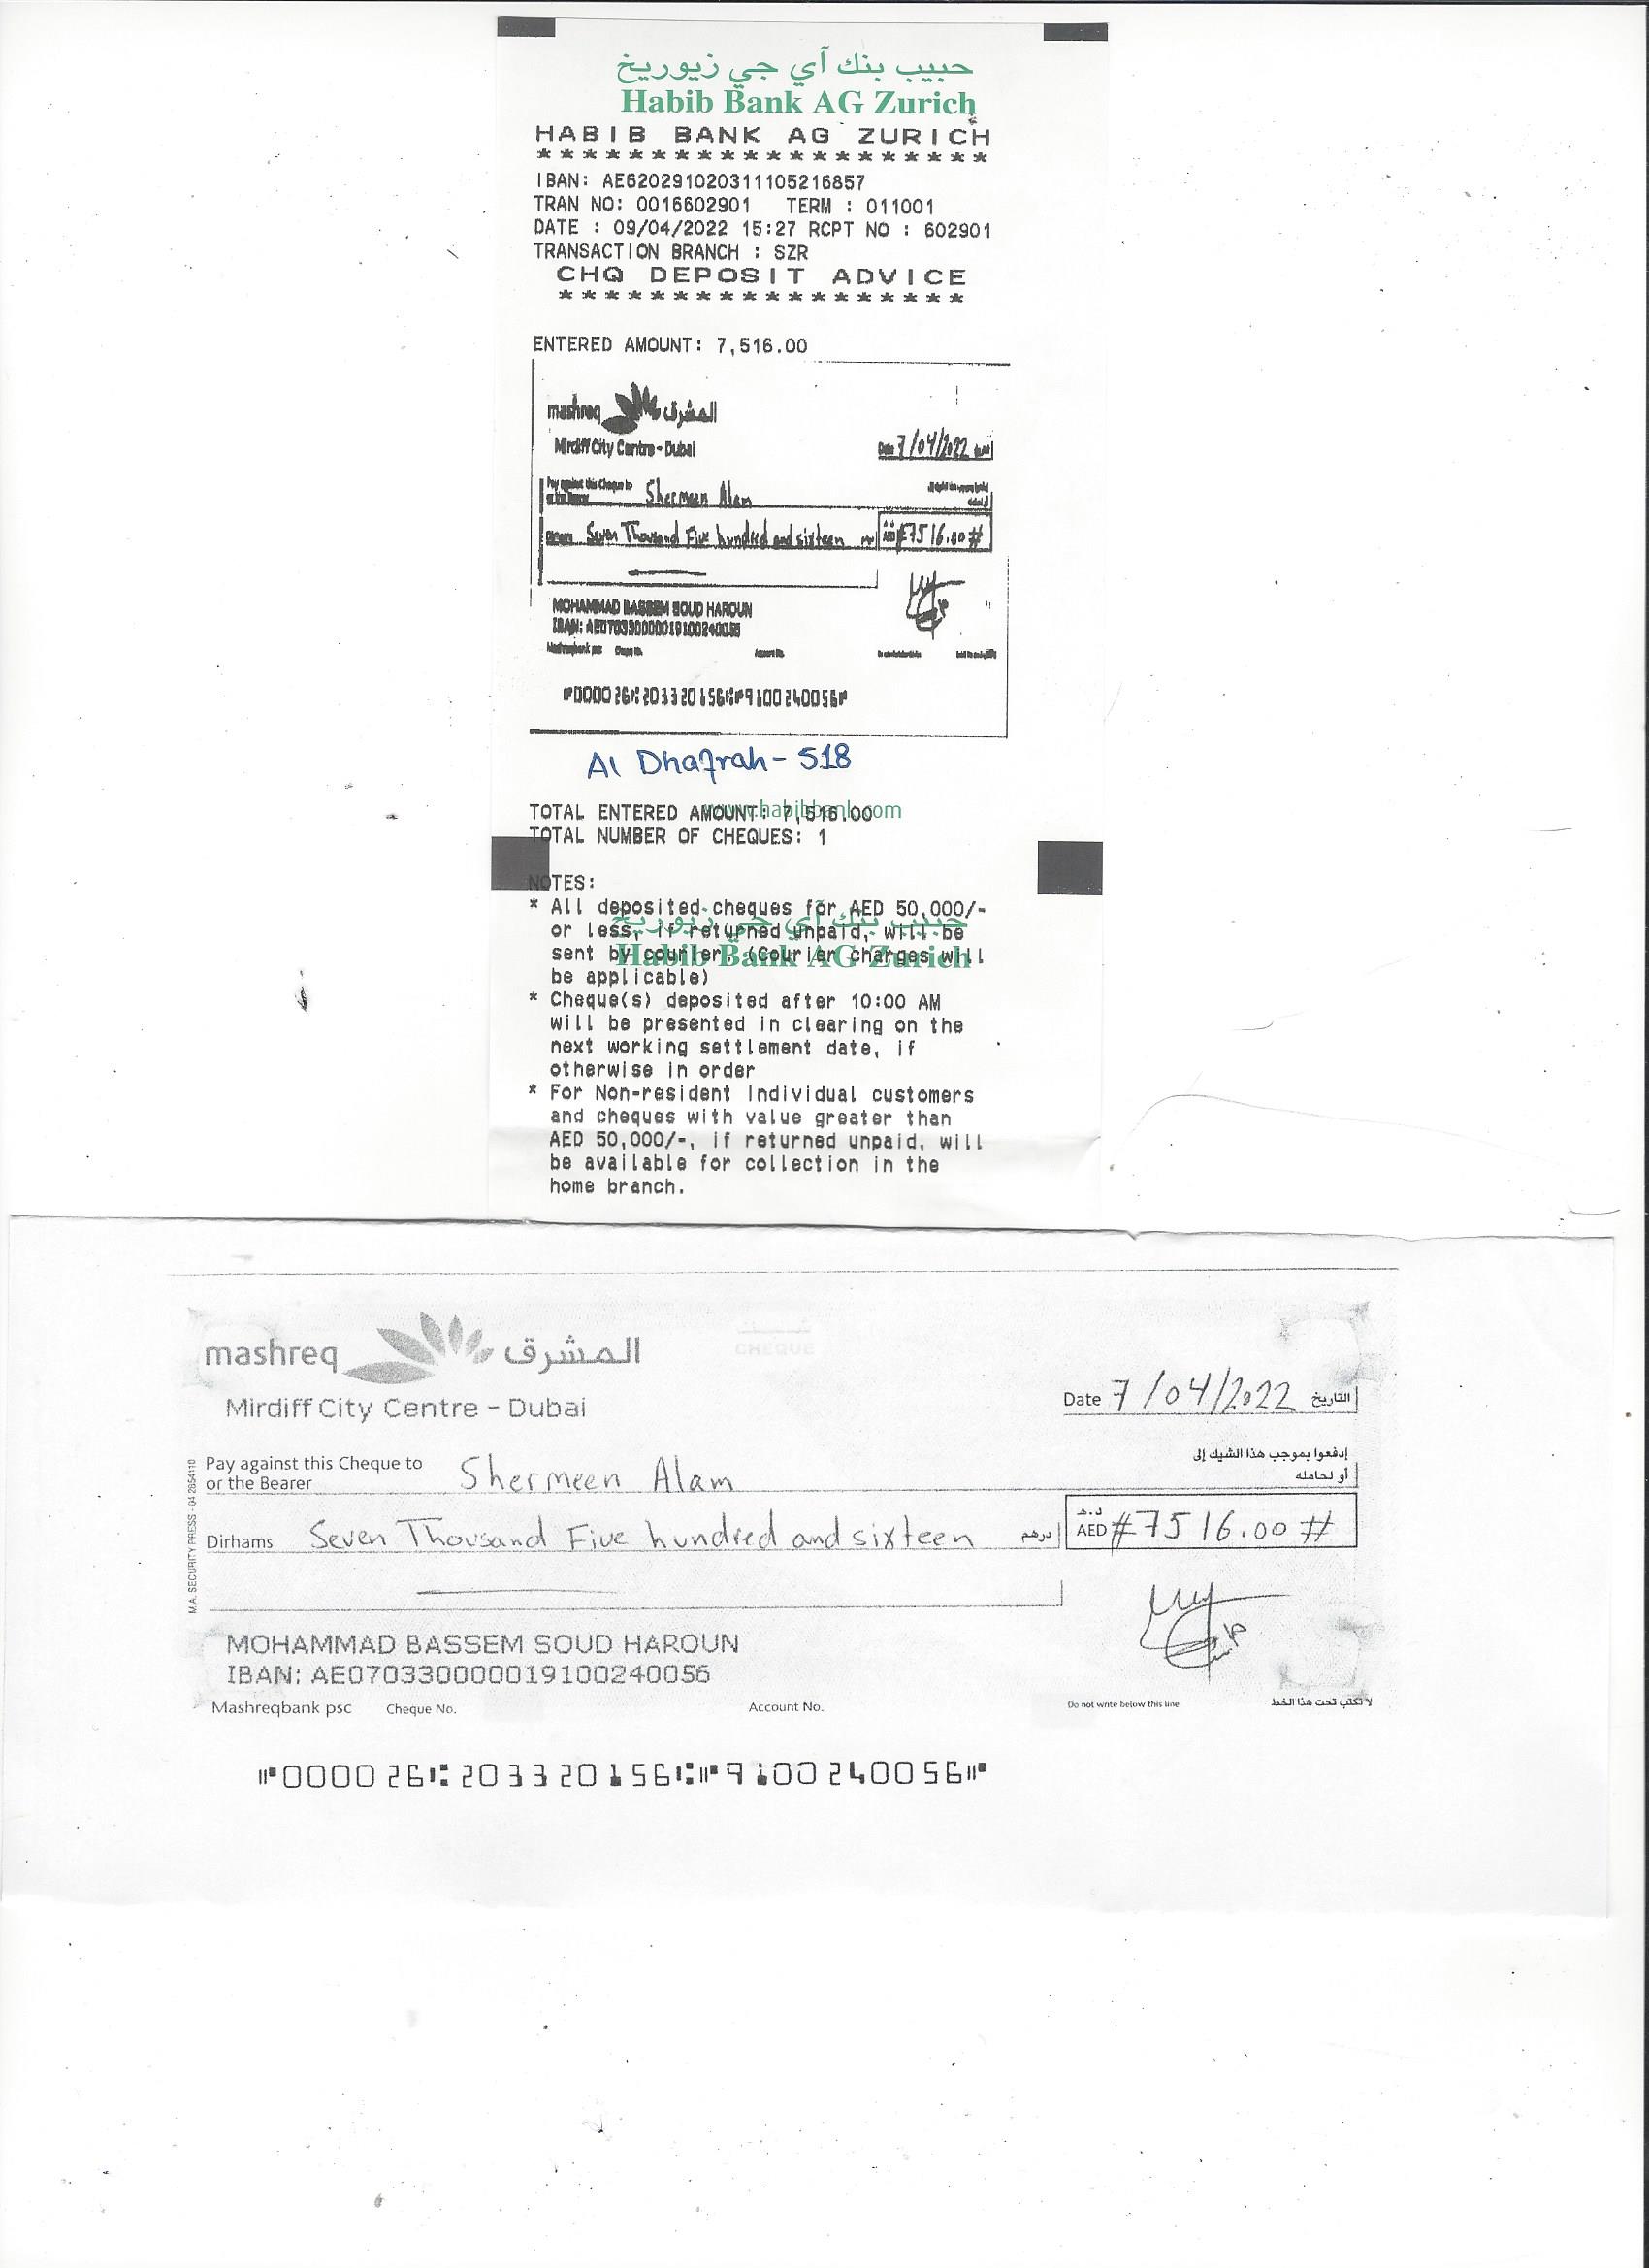 حبيب بنك آي جي زيوريخ
Habib Bank AG Zurich
HABIB BANK AG ZURICH
* * * * * * * * * * * * * * * * * * * *
IBAN: AE620291020311105216857
TRAN NO: 0016602901 TERM : 011001
DATE : 09/04/2022 15:27 RCPT NO : 602901
TRANSACTION BRANCH : SZR
CHQ DEPOSIT ADVICE
* * * * * * * * * * * * * * * * * *
ENTERED AMOUNT: 7,516.00
mashreq المشرق
Mirdiff City Centre - Dubai
Date 7/04/2022 التاريخ
Pay against this Cheque to
or the Bearer Shermeen Alam
Dirhams Seven Thousand Five hundred and sixteen درهم AED #7516.00#
MOHAMMAD BASSEM SOUD HAROUN
IBAN: AE070330000019100240056
Mashreqbank psc Cheque No. Account No.
⑈000026⑆203320156⑆⑈9100240056⑈
Al Dhafrah - 518
www.habibbank.com
TOTAL ENTERED AMOUNT: 7,516.00
TOTAL NUMBER OF CHEQUES: 1
NOTES:
حبيب بنك آي جي زيوريخ
Habib Bank AG Zurich
* All deposited cheques for AED 50,000/-
or less, if returned unpaid, will be
sent by courier. (Courier charges will
be applicable)
* Cheque(s) deposited after 10:00 AM
will be presented in clearing on the
next working settlement date, if
otherwise in order
* For Non-resident Individual customers
and cheques with value greater than
AED 50,000/-, if returned unpaid, will
be available for collection in the
home branch.
mashreq المشرق
CHEQUE
Mirdiff City Centre - Dubai
Date 7/04/2022 التاريخ
Pay against this Cheque to إدفعوا بموجب هذا الشيك إلى
or the Bearer Shermeen Alam أو لحامله
Dirhams Seven Thousand Five hundred and sixteen درهم د.هـ AED #7516.00#
M.A. SECURITY PRESS - 04 2654110
MOHAMMAD BASSEM SOUD HAROUN
IBAN: AE070330000019100240056
Mashreqbank psc Cheque No. Account No. Do not write below this line لا تكتب تحت هذا الخط
⑈000026⑆203320156⑆⑈9100240056⑈